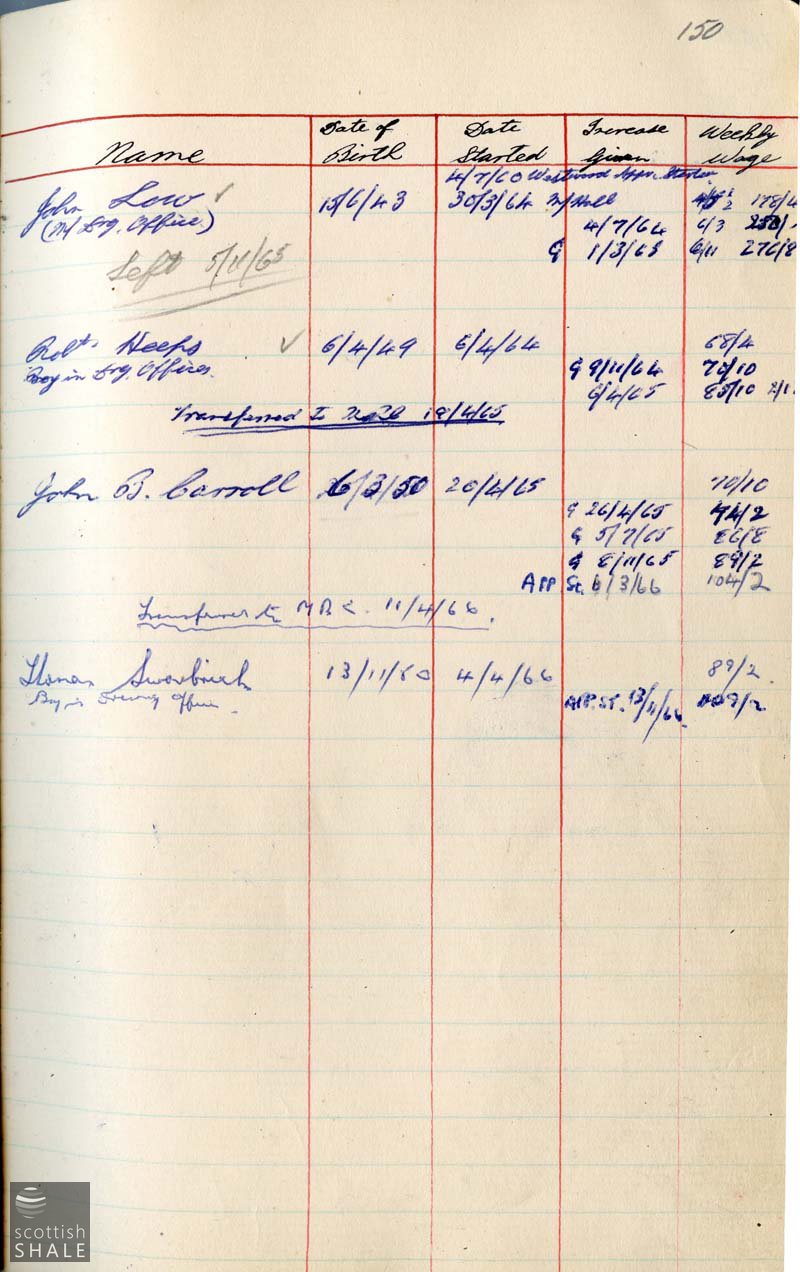 150
Name Date of Birth Date Started Increase Given Weekly Wage
4/7/60 Westwood Appr.
John Low ✓ 15/6/43 30/3/64 178/4
(M/ Drg. Office.) 4/7/64 6/3 250/-
G 1/3/65 6/11 276/8
Left 5/11/65
Robt. Heeps ✓ 6/4/49 6/4/64 68/4
Boy in Drg. Offices. G 9/11/64 70/10
6/4/65 85/10
Transferred to 19/4/65
John B. Carroll 6/3/50 20/4/65 70/10
G 26/4/65 74/2
G 5/7/65 86/8
G 8/11/65 89/2
APP St. 6/3/66 104/2
Transferred to 11/4/66.
Swarbrick 13/11/50 4/4/66 89/2.
Boy in Drawing Office. APP. ST. 13/4/66. 109/2
scottish
SHALE